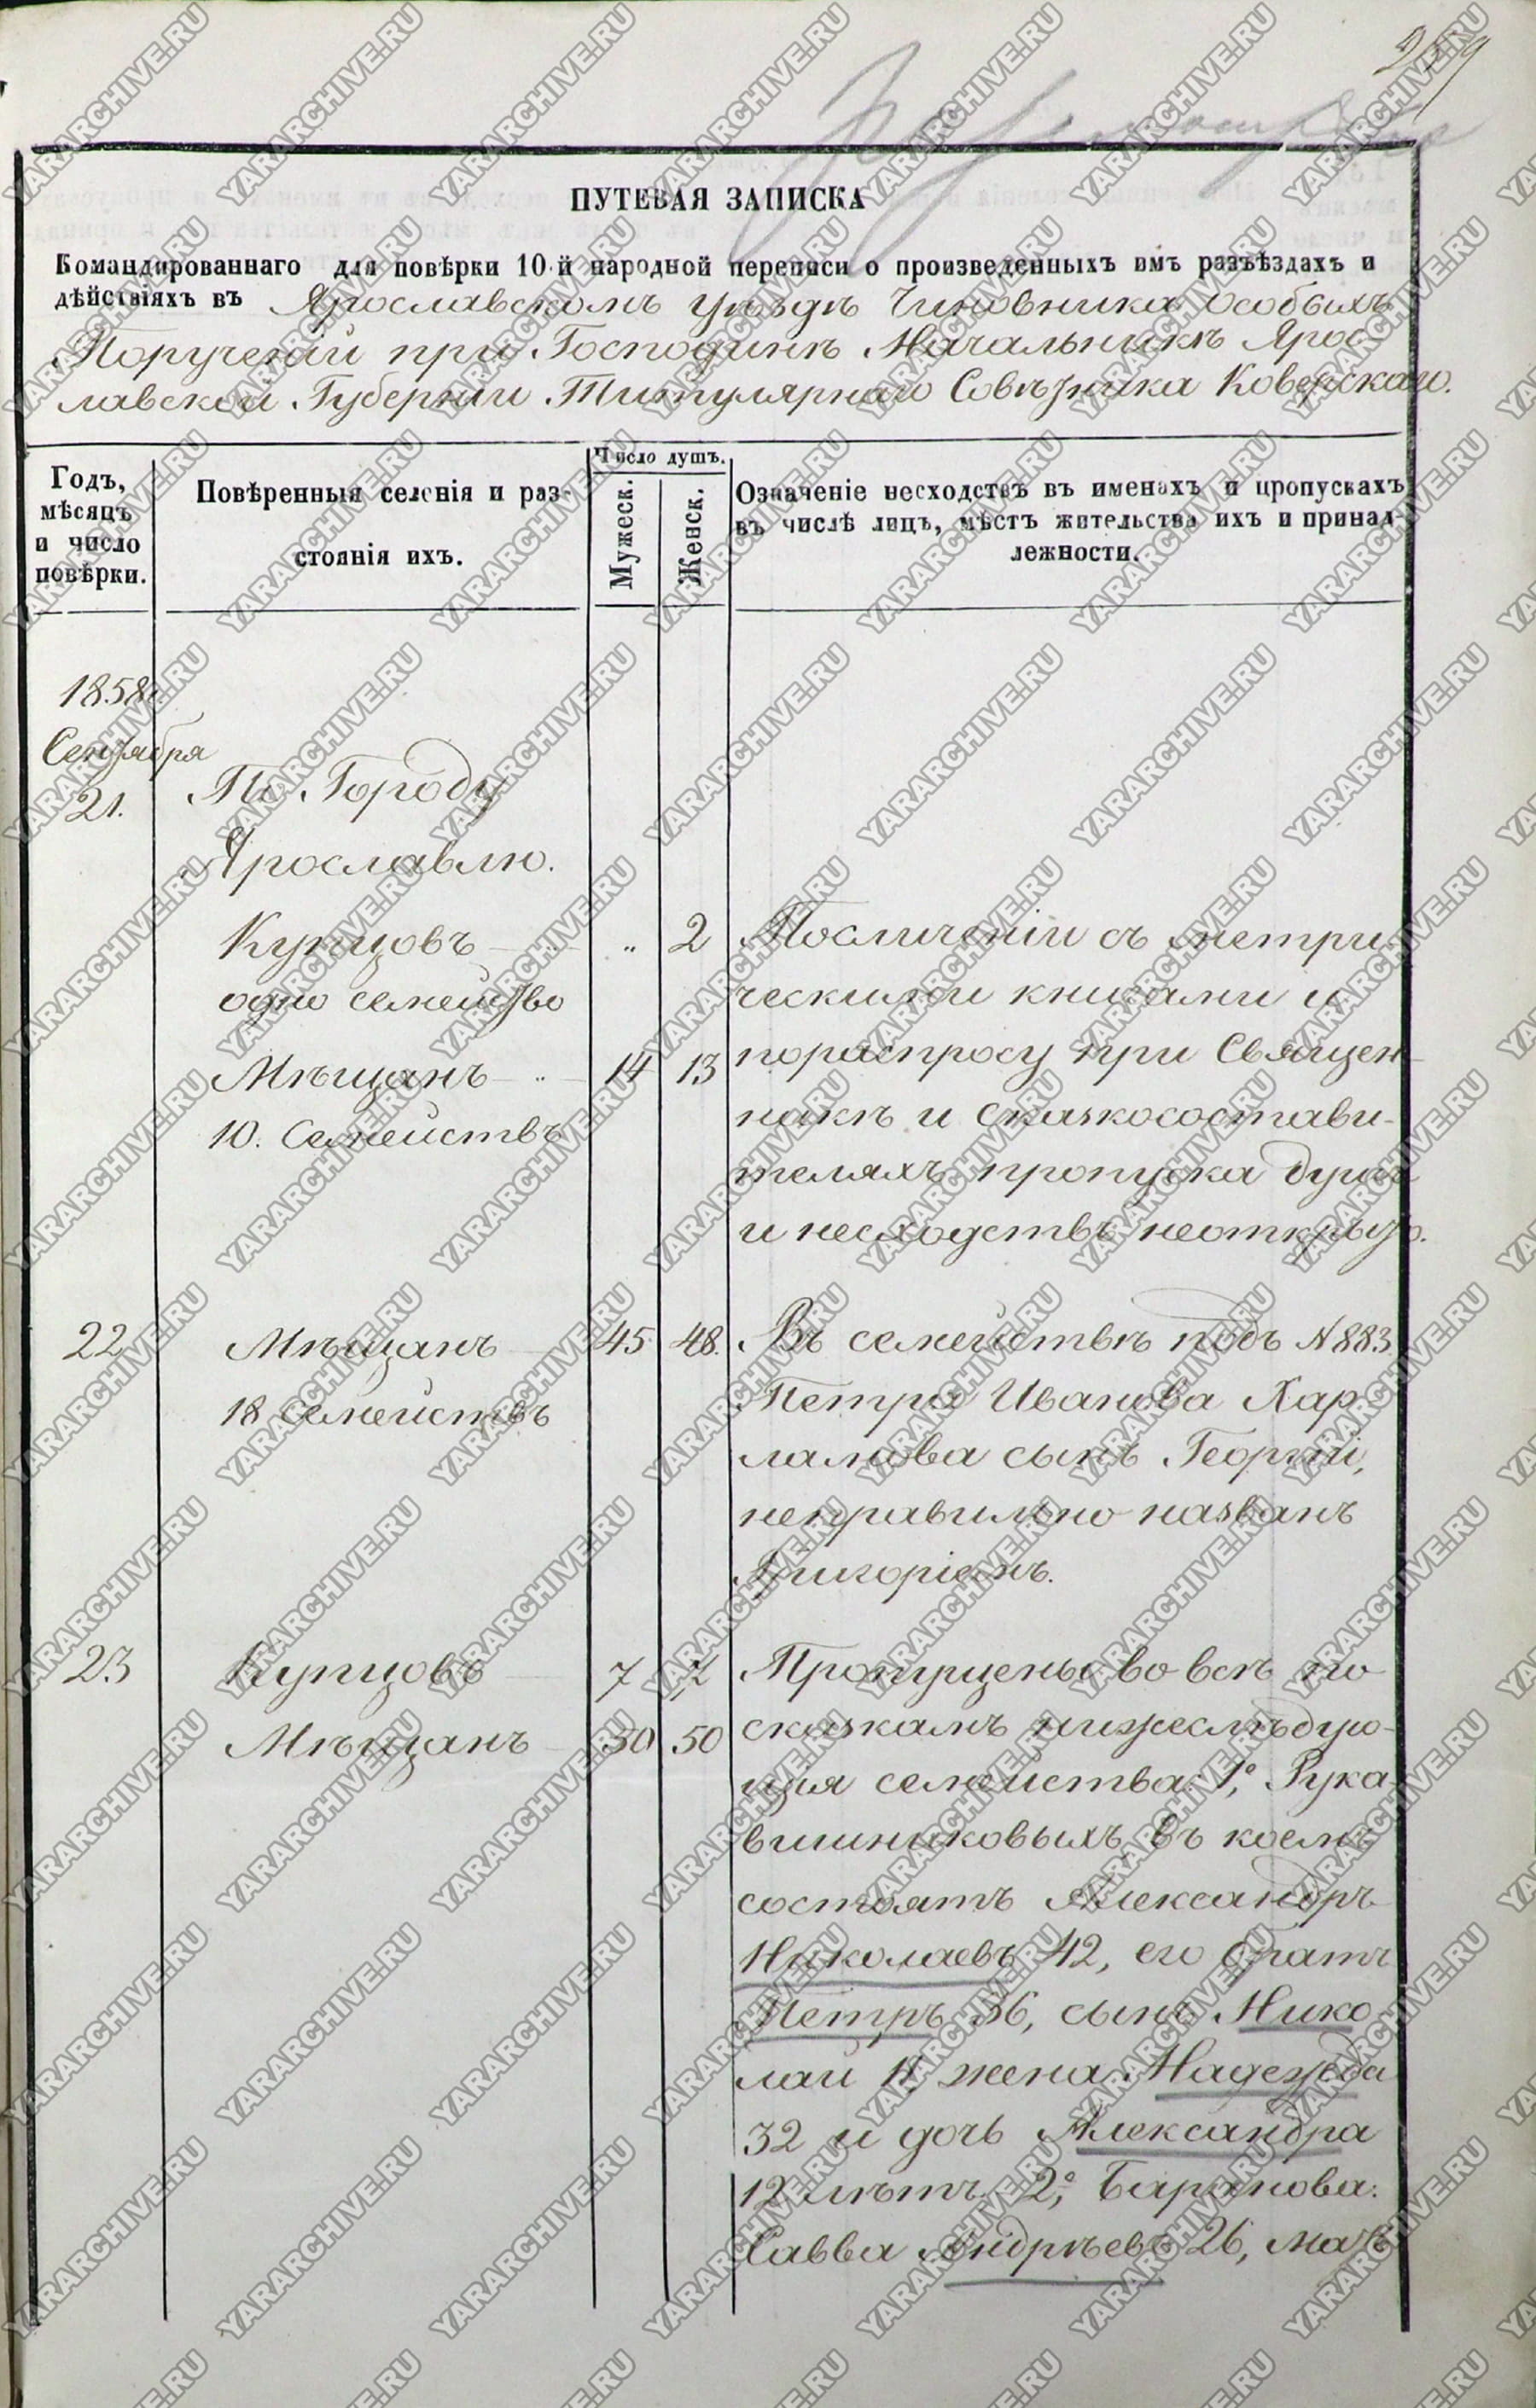 ПУТЕВАЯ ЗАПИСКА
Командированнаго для повѣрки 10-й народной переписи о произведенныхъ имъ разъѣздахъ и
дѣйствіяхъ въ Ярославскомъ Уѣздѣ Чиновника особыхъ
Порученій при Господинѣ Начальникѣ Ярос
лавской Губерніи Титулярнаго Совѣтника Коверскаго.
Годъ,
мѣсяцъ
и число
повѣрки.
Повѣренныя селенія и раз-
стоянія ихъ.
Число душъ.
Мужеск.
Женск.
Означеніе несходствъ въ именахъ и пропускахъ
въ числѣ лицъ, мѣстъ жительства ихъ и принад-
лежности.
1858
Сентября
21.
По Городу
Ярославлю.
Купцовъ
одно семейство
„ 2
Мѣщанъ
10. Семействъ
14 13
По сличеніи съ метри
ческими книгами и
пораспросу при Священ-
никѣ и сказкосостави-
теляхъ пропуска душъ
и несходствъ неоткрыто.
22
Мѣщанъ
18 семействъ
45 48.
Въ семействѣ подъ N 883
Петра Иванова Хар
ламова сынъ Георгій,
неправильно названъ
Григоріемъ.
23
Купцовъ 7 7
Мѣщанъ 50 50
Пропущены во всѣ по
сказкамъ нижеслѣдую-
щія семейства: 1°, Рука
вишниковыхъ въ коемъ
состоятъ Александръ
Николаевъ 42, его братъ
Петръ 36, сынъ Нико
лай 11, жена Надежда
32 и дочь Александра
12 лѣтъ. 2°, Баранова.
Савва Андрѣевъ 26, мать
YARARCHIVE.RU